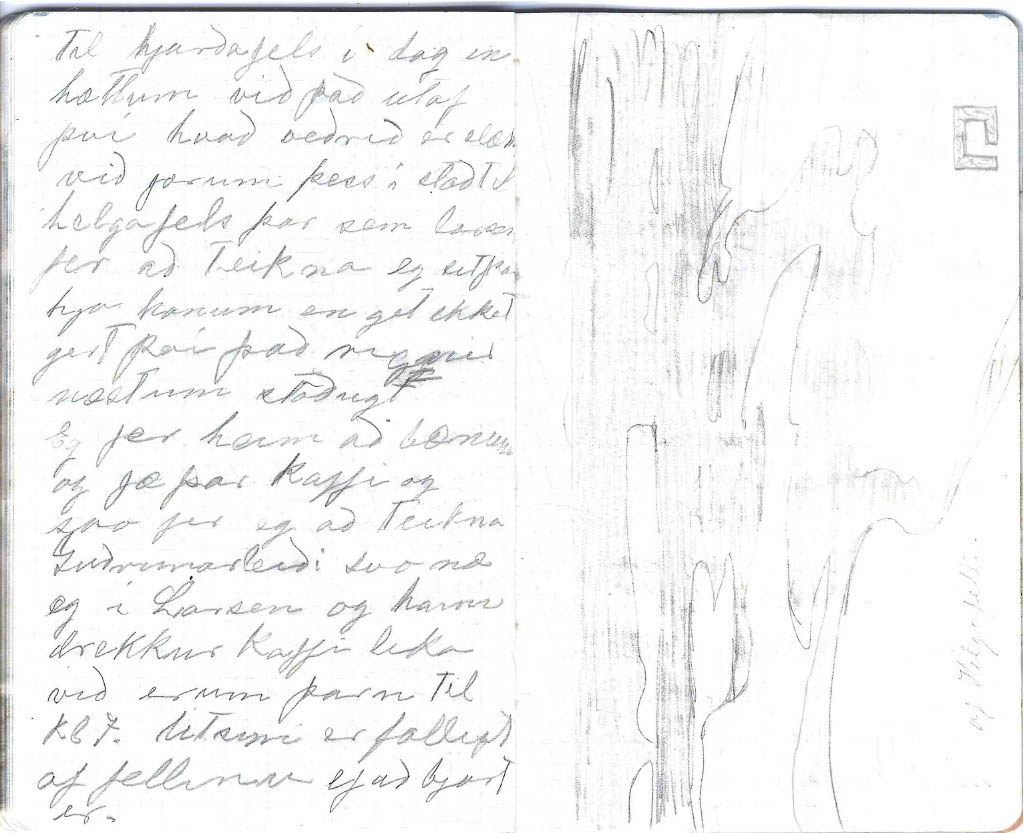 Til hjarðafels i dag en
hættum við það utaf
því hvað veðrið er slæm
við förum þess i stað til
helgafels þar sem larsen
fer að teikna eg sit þar
hja honum en get ekket
gert því það
næstum stöðugt
Eg fer heim að bænum
og fæ þar kaffi og
svo fer eg að teikna
Guðrunarleiði svo næ
eg i Larsen og hann
drekkur kaffi lika
við erum þarn til
Kl 7. Utsini er fallegt
af fellinu ef að bjart
er.
af Helgafelli.